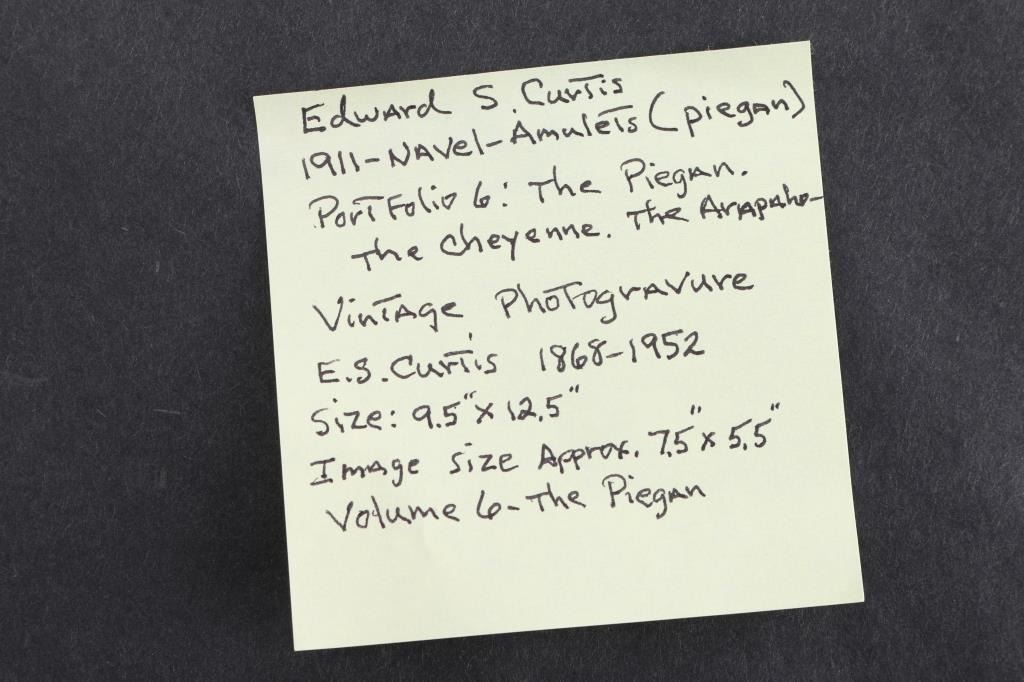 Edward S. Curtis
1911-Navel-Amulets (piegan)
Portfolio 6: The Piegan.
The Cheyenne. The Arapaho-
Vintage Photogravure
E.S. Curtis 1868-1952
Size: 9.5" x 12.5"
Image size Approx. 7.5" x 5.5"
Volume 6-The Piegan